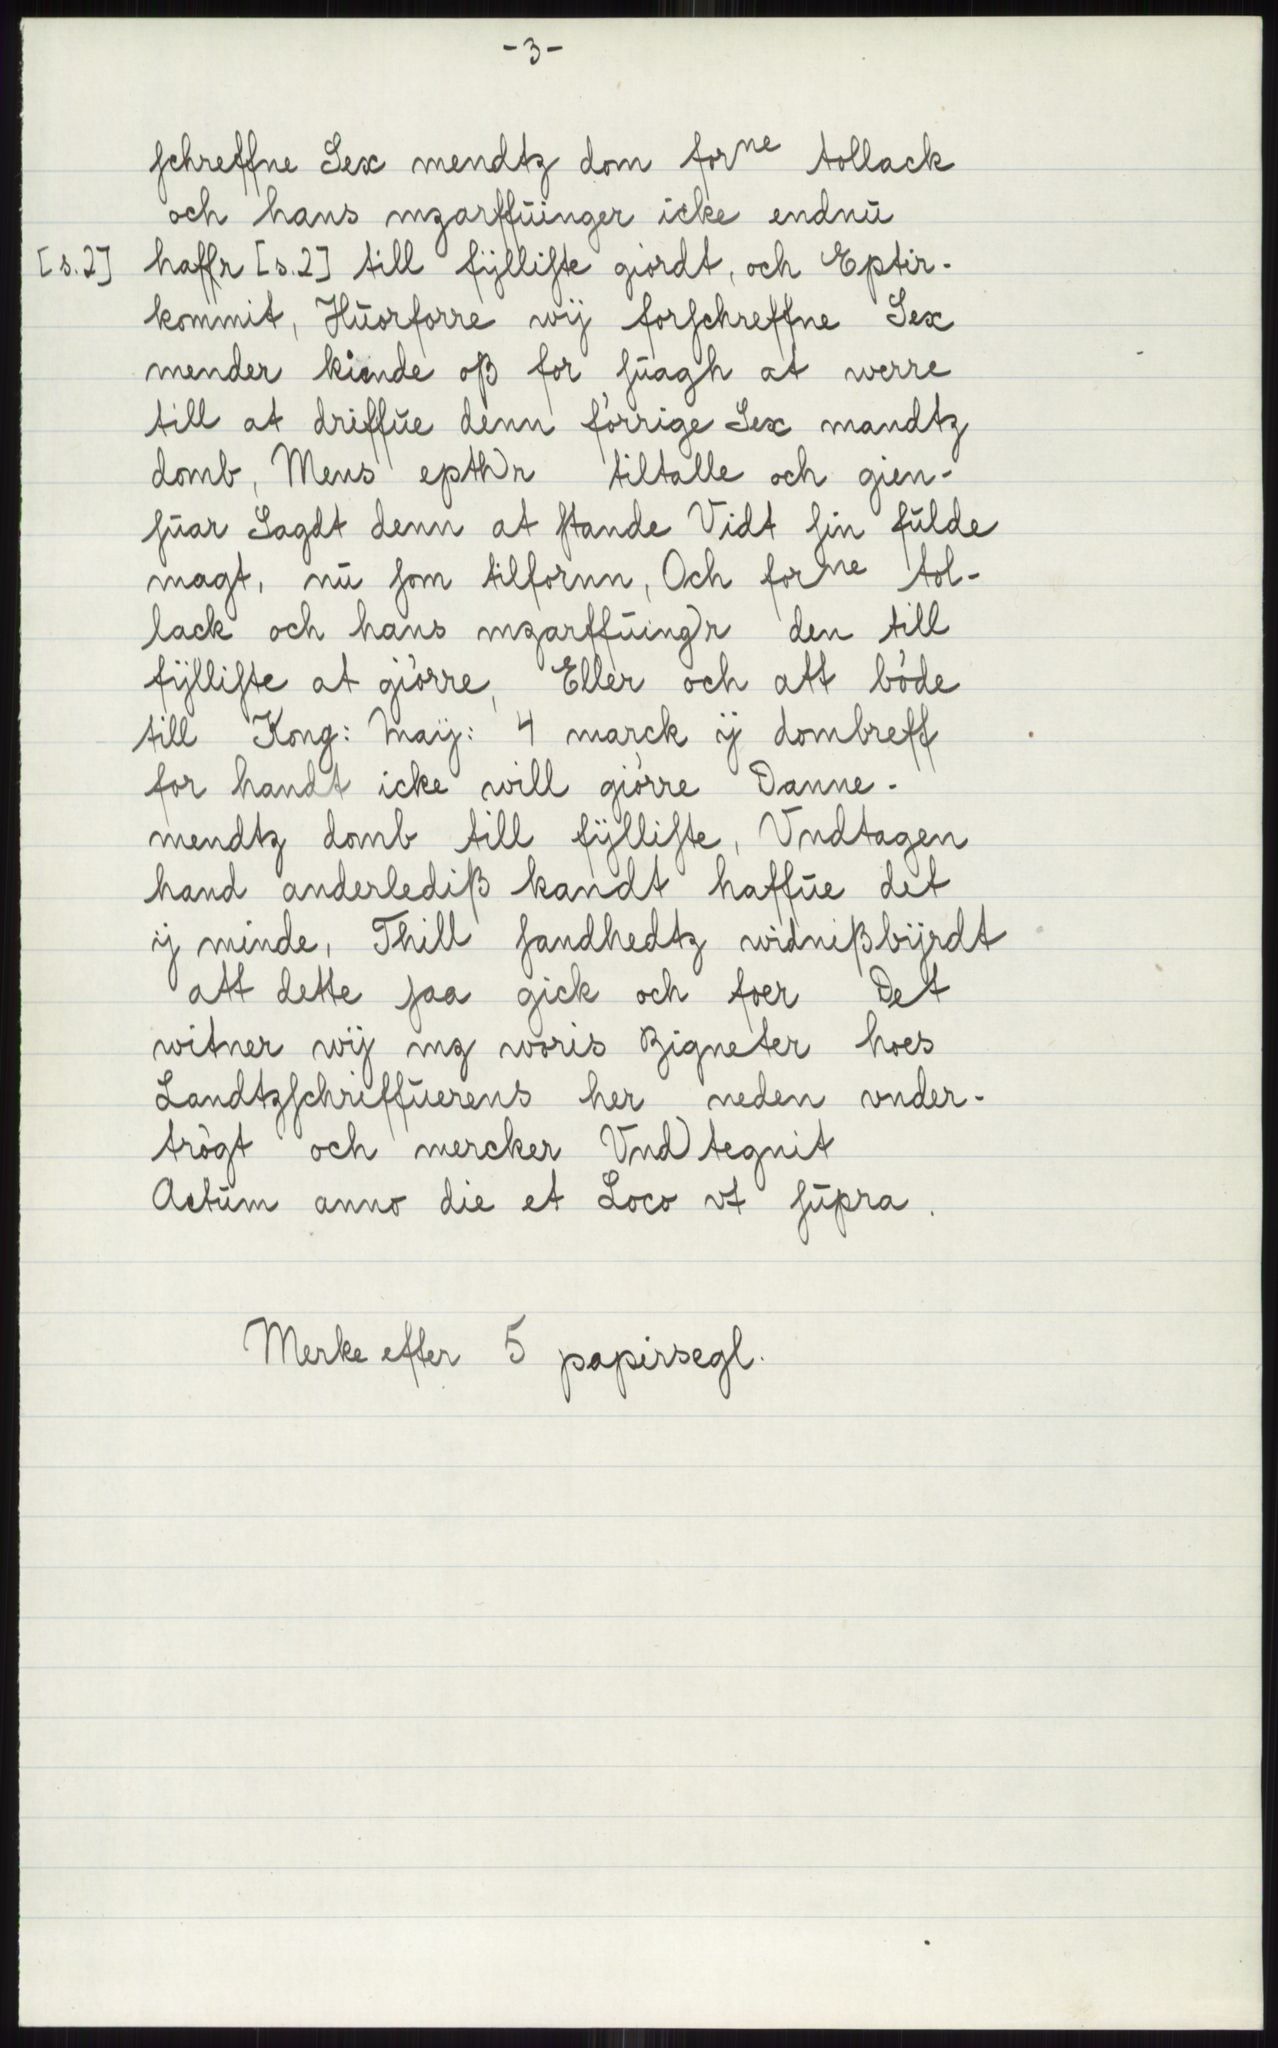 -3-
ſchreffne Sex mendtz dom forne tollack
och hans mzarffŭinger icke endnŭ
[s.2] haffr [s.2] till fÿlliſte giòrdt, och Eptir-
kommit, Hŭorforre wÿ forſchreffne Sex
mender kiende oß for ſŭagh at werre
till at driffŭe denn fòrrige Sex mandtz
domb, Mens epthr tiltalle och gien-
ſŭar Sagdt denn at ſtande Vidt ſin fŭlde
magt, nŭ ſom tilfornn, Och forne tol-
lack och hans mzarffŭingr den till
fÿlliſte at giòrre, Eller och att bòde
till Kong: Maÿ: 4 marck ÿ dombreff
for handt icke will giòrre Danne-
mendtz domb till fÿlliſte, Vndtagen
hand anderlediß kandt haffŭe det
ÿ minde, Thill ſandhedtz widnißbÿrdt
att dette ſaa gick och foer Det
witner wÿ mz woris Zigneter hoes
Landtzſchriffŭerens her neden vnder-
trògt och mercker Vnd tegnit
Actŭm anno die et Loco vt ſŭpra.
Merke efter 5 papirsegl.